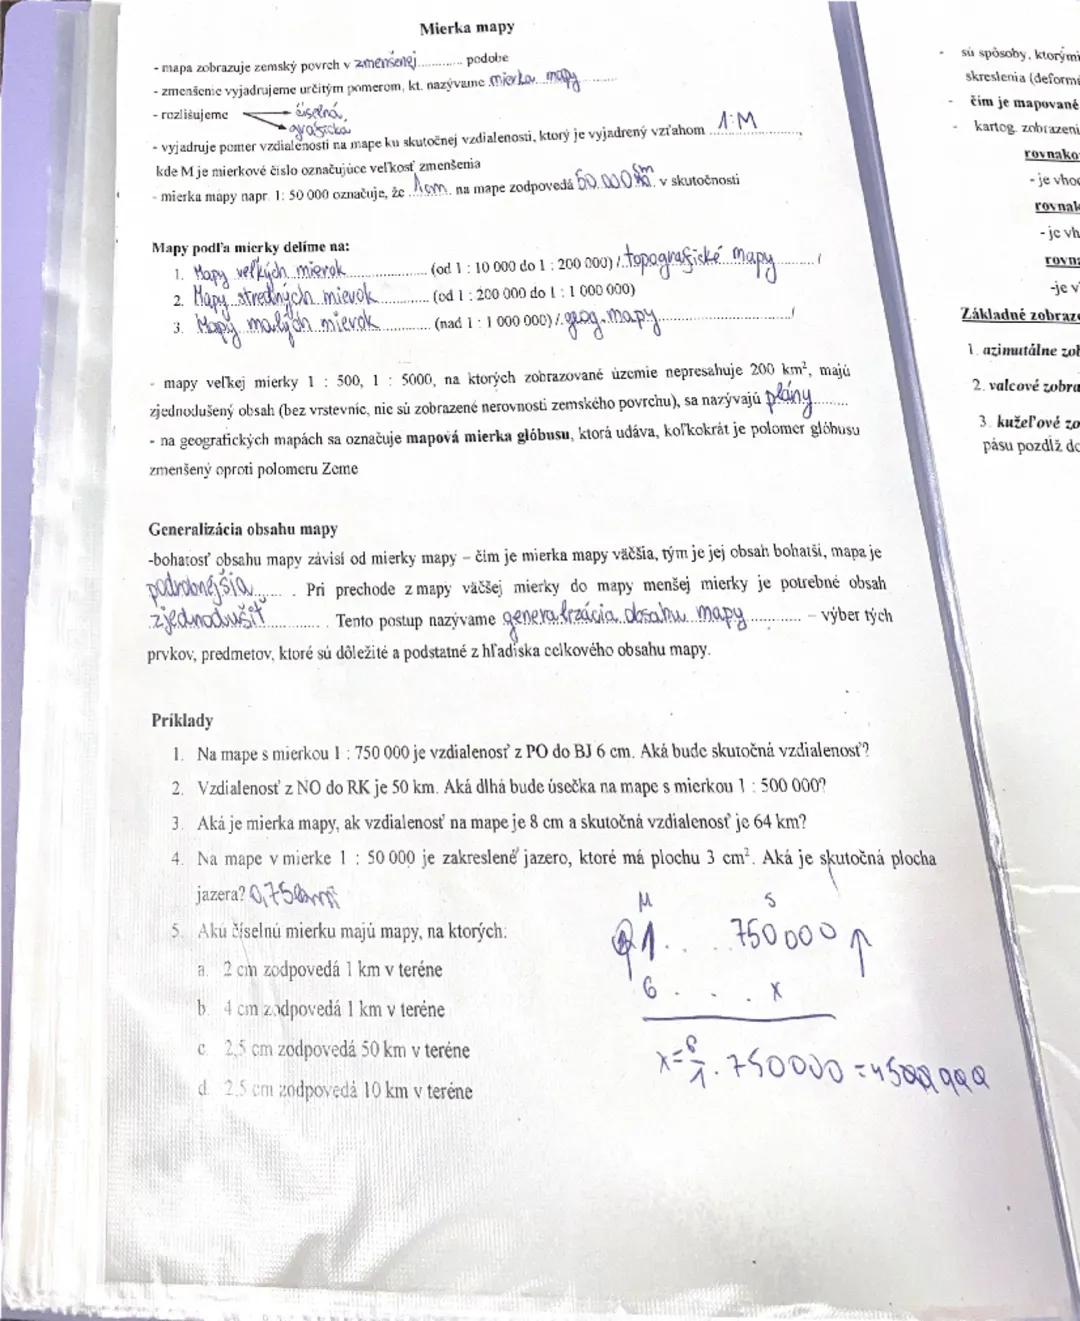 Mierka mapy
- mapa zobrazuje zemský povrch v zmenšenej podobe
- zmenšenie vyjadrujeme určitým pomerom, kt. nazývame mierka mapy
- rozlišujeme číselná,
grafická
- vyjadruje pomer vzdialenosti na mape ku skutočnej vzdialenosti, ktorý je vyjadrený vzťahom 1:M
kde M je mierkové číslo označujúce veľkosť zmenšenia
- mierka mapy napr. 1: 50 000 označuje, že 1cm na mape zodpovedá 50.000 cm v skutočnosti
Mapy podľa mierky delíme na:
1. Mapy veľkých mierok (od 1 : 10 000 do 1 : 200 000) / topografické mapy /
2. Mapy stredných mierok (od 1 : 200 000 do 1 : 1 000 000)
3. Mapy malých mierok (nad 1 : 1 000 000) / geog. mapy /
- mapy veľkej mierky 1 : 500, 1 : 5000, na ktorých zobrazované územie nepresahuje 200 km², majú
zjednodušený obsah (bez vrstevníc, nie sú zobrazené nerovnosti zemského povrchu), sa nazývajú plány
- na geografických mapách sa označuje mapová mierka glóbusu, ktorá udáva, koľkokrát je polomer glóbusu
zmenšený oproti polomeru Zeme
Generalizácia obsahu mapy
-bohatosť obsahu mapy závisí od mierky mapy – čím je mierka mapy väčšia, tým je jej obsah bohatší, mapa je
podrobnejšia . Pri prechode z mapy väčšej mierky do mapy menšej mierky je potrebné obsah
zjednodušiť . Tento postup nazývame generalizácia obsahu mapy – výber tých
prvkov, predmetov, ktoré sú dôležité a podstatné z hľadiska celkového obsahu mapy.
Príklady
1. Na mape s mierkou 1 : 750 000 je vzdialenosť z PO do BJ 6 cm. Aká bude skutočná vzdialenosť?
2. Vzdialenosť z NO do RK je 50 km. Aká dlhá bude úsečka na mape s mierkou 1 : 500 000?
3. Aká je mierka mapy, ak vzdialenosť na mape je 8 cm a skutočná vzdialenosť je 64 km?
4. Na mape v mierke 1 : 50 000 je zakreslené jazero, ktoré má plochu 3 cm². Aká je skutočná plocha
jazera? 0,75
5. Akú číselnú mierku majú mapy, na ktorých:
a. 2 cm zodpovedá 1 km v teréne
b. 4 cm zodpovedá 1 km v teréne
c. 2,5 cm zodpovedá 50 km v teréne
d. 2,5 cm zodpovedá 10 km v teréne
M S
1 . . . 750 000
6 . . . x
x = 6/1 . 750000 = 4500 000
- sú spôsoby, ktorými
skreslenia
- čím je mapované
- kartog. zobrazeni
- je vho
- je vh
-je v
Základné
1. azimutálne
2. valcové
3. kužeľové
pásu pozdĺž